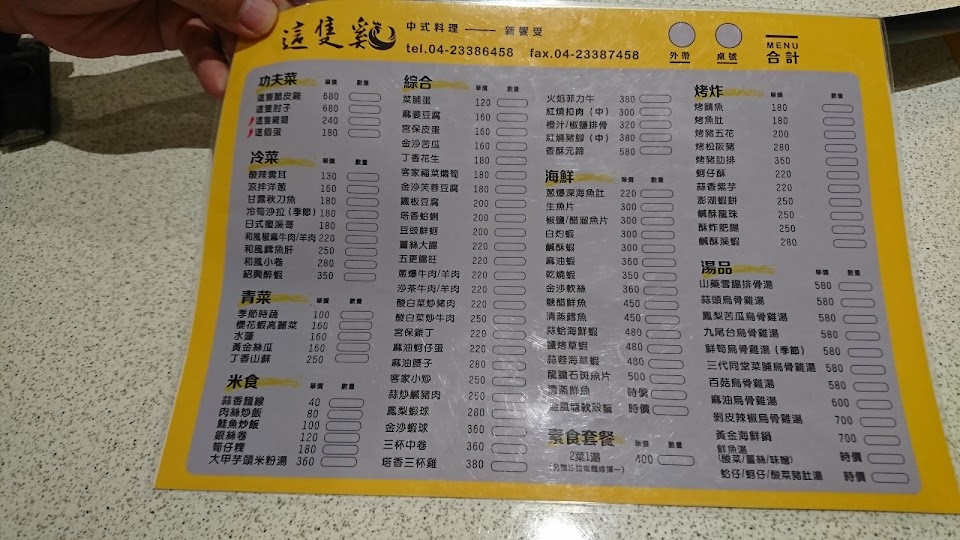 這隻雞 中式料理 —— 新饗受
tel.04-23386458 fax.04-23387458
外帶 桌號 MENU 合計
功夫菜 單價 數量
這隻脆皮雞 580
這隻肘子 680
這隻雞翅 240
這個蛋 180
冷菜 單價 數量
酸辣雲耳 130
涼拌洋蔥 160
甘露秋刀魚 180
冷筍沙拉(季節) 180
日式蜜溪哥 180
和風椒麻牛肉/羊肉 220
和風鱈魚肝 250
和風小卷 280
紹興醉蝦 350
青菜 單價 數量
季節時蔬 100
櫻花蝦高麗菜 160
水蓮 160
黃金絲瓜 160
丁香山蘇 250
米食 單價 數量
蒜香麵線 40
肉絲炒飯 80
鮭魚炒飯 100
銀絲卷 120
筍仔粿 180
大甲芋頭米粉湯 360
綜合 單價 數量
菜脯蛋 120
麻婆豆腐 160
宮保皮蛋 160
金沙苦瓜 160
丁香花生 180
客家福菜燜筍 180
金沙芙蓉豆腐 180
鐵板豆腐 200
塔香蛤蜊 200
豆豉鮮蚵 200
薑絲大腸 220
五更腸旺 220
蔥爆牛肉/羊肉 220
沙茶牛肉/羊肉 220
酸白菜炒豬肉 220
酸白菜炒牛肉 250
宮保雞丁 220
麻油蚵仔蛋 220
麻油腰子 280
客家小炒 250
蒜炒鹹豬肉 250
鳳梨蝦球 280
金沙蝦球 360
三杯中卷 360
塔香三杯雞 380
火焰菲力牛 380
紅燒扣肉(中) 300
橙汁/椒鹽排骨 320
紅燒豬腳(中) 380
香酥元蹄 580
海鮮 單價 數量
蔥爆深海魚肚 220
生魚片 300
椒鹽/醋溜魚片 300
白灼蝦 300
鹹酥蝦 300
麻油蝦 360
乾燒蝦 350
金沙軟絲 360
糖醋鮮魚 450
清蒸鱈魚 450
蒜蛤海鮮蝦 480
鹽烤草蝦 480
蒜蓉海草蝦 480
龍膽石斑魚片 500
清蒸鮮魚 時價
金風塘軟殼蟹 時價
素食套餐 單價 數量
2菜1湯 400
烤炸 單價 數量
烤鯖魚 180
烤魚肚 180
烤豬五花 200
烤松阪豬 280
烤豬肋排 350
蚵仔酥 220
蒜香紫芋 220
澎湖蝦餅 250
鹹酥龍珠 250
酥炸肥腸 250
鹹酥溪蝦 280
湯品 單價 數量
山藥雪腸排骨湯 580
蒜頭烏骨雞湯 580
鳳梨苦瓜烏骨雞湯 580
九尾台烏骨雞湯 580
鮮筍烏骨雞湯(季節) 580
三代同堂菜脯烏骨雞湯 580
百菇烏骨雞湯 580
麻油烏骨雞湯 600
剝皮辣椒烏骨雞湯 700
黃金海鮮鍋 700
鮮魚湯
(酸菜/薑絲/味噌) 時價
蛤仔/蚵仔/酸菜豬肚湯 時價